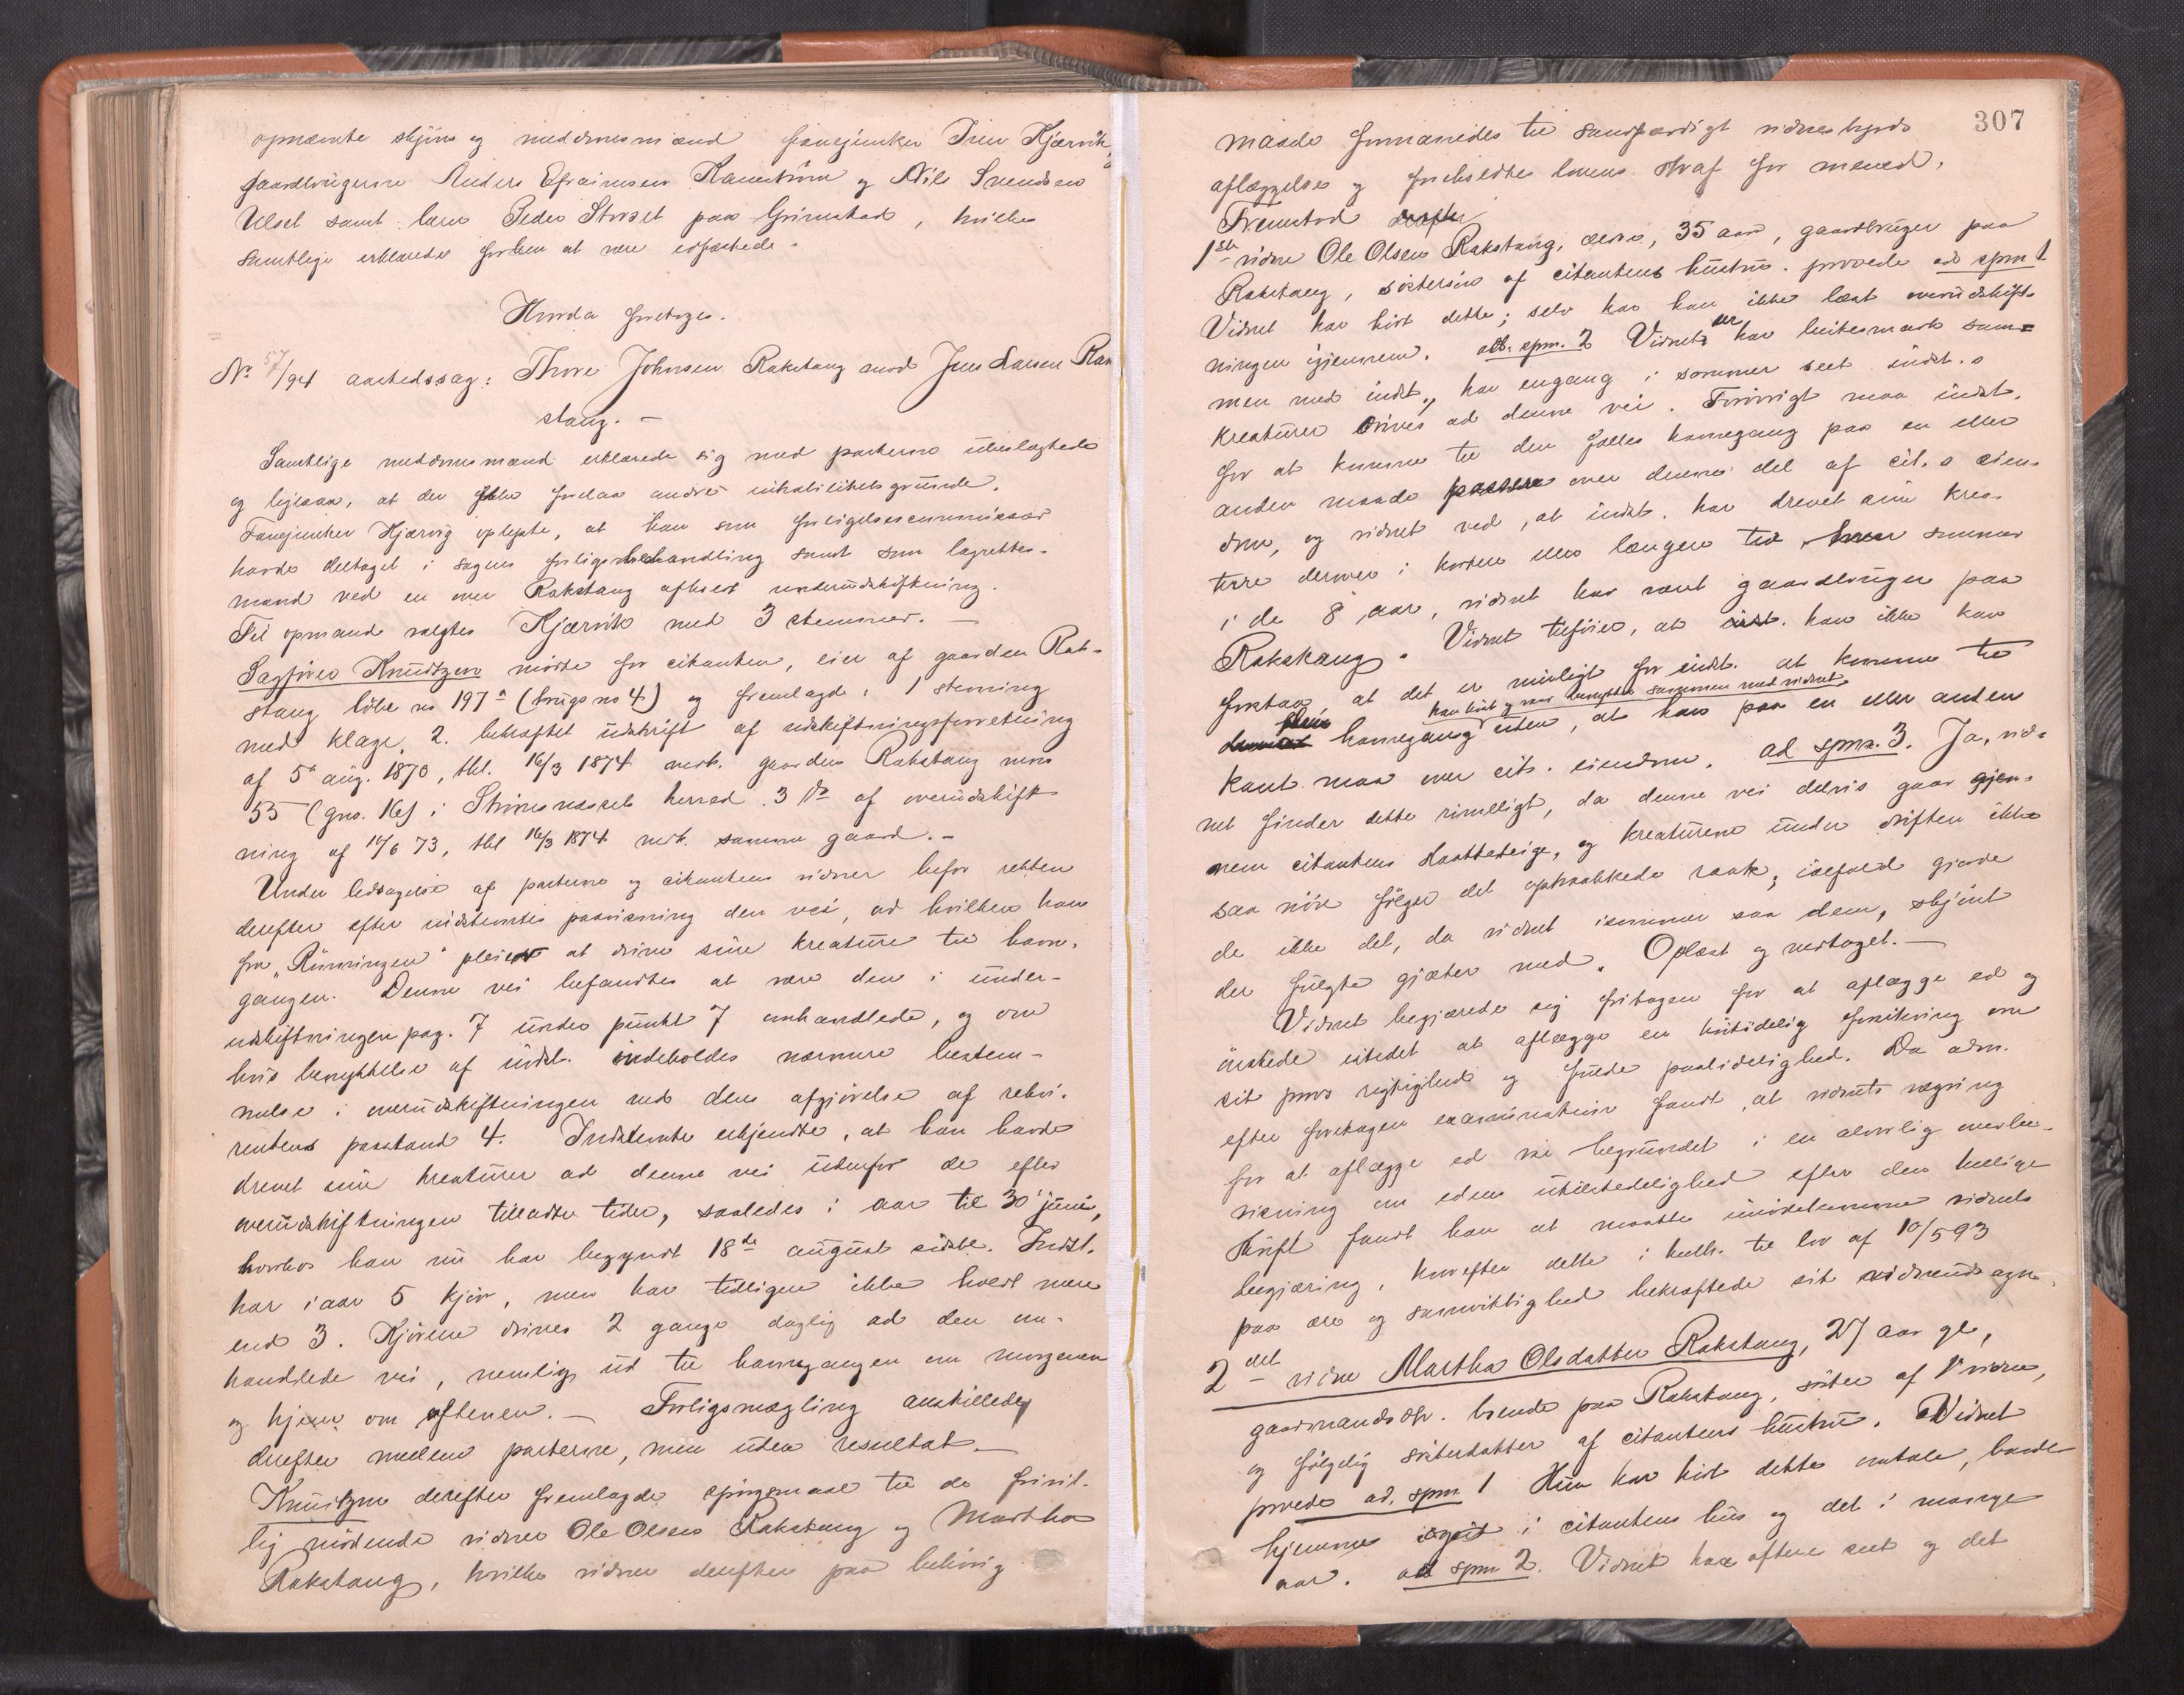 opnævnte skjøns og meddomsmænd fanejunker Iver Kjærvik,
gaardbrugerne Anders Efraimsen Kamstrüm og Nils Svendsen
Ulset samt Lars Peder Storset paa Grimstad, hvilke
samtlige erklærede forhen at være edfæstede.
Hvorda foretoges.
No 57/94 aastedssag: Thore Johnsen Rakstang mod Jens Larsen Rak
stang. —
Samtlige meddomsmænd erklærede sig med parterne ubeslægtede
og ligesaa, at der ikke forelaa andre inhabilitetsgrunde.
Fanejunker Kjærvig oplyste, at han som forligelseskommissær
havde deltaget i sagens forligsbehandling samt som lagrettes-
mand ved en over Rakstang afholdt underudskiftning.
Til opmand valgtes Kjærvik med 3 stemmer. —
Sagfører Knudtzon mødte for citanten, eier af gaarden Rak-
stang løbe no 197a (brugs no 4) og fremlagde: 1 stevning
med klage, 2. bekræftet udskrift af udskiftningsforretning
af 5te aug. 1870, thl. 16/3 1874 vedk. gaarden Rakstang mno
55 (gno. 16) i Strinesnæssets herred. 3 do af overudskift-
ning af 11/6 73, thl 16/3 1874 vedk. samme gaard. —
Under ledsagelse af parterne og citantens vidner befor retten
derefter efter indstevntes paavisning den vei, ad hvilken han
fra "Rünningen" pleier at drive sine kreature til havn-
gangen. Denne vei befandtes at være den i under-
udskiftningen pag. 7 under punkt 7 omhandlede, og om
hvis benyttelse af indst. indeholdes nærmere bestem-
melse i overudskiftningen ved dens afgjørelse af rekvi-
rentens paastand 4. Indstevnte erkjendte, at han havde
drevet sine kreaturer ad denne vei udenfor de efter
overudskiftningen tilladte tider, saaledes i aar til 30' juni,
hvorhos han nu har begyndt 18de august sidstl. Indst.
har iaar 5 kjør, men har tidligere ikke havt mere
end 3. Kjørene drives 2 gange daglig ad den om-
handlede vei, nemlig ud til havnegangen om morgenen
og hjem om aftenen. — Forligsmægling anstilledes
derefter mellem parterne, men uden resultat. —
Knudtzon derefter fremlagde spørgsmaal til de frivil-
lig mødende vidner Ole Olsen Rakstang og Martha
Rakstang, hvilke vidner derefter paa behørig
307
maade formanedes til sandfærdigt vidnesbyrds
aflæggelse og foreholdtes lovens straf for mened.
Fremstod derefter
1ste vidne Ole Olsen Rakstang, 35 aar, gaardbruger paa
Rakstang, søstersøn af citantens hustru. provede ad spm 1
Vidnet har hørt dette; selv har han ikke læst overudskift-
ningen igjennem. ad. spm. 2 Vidnet, der har beitesmark sam-
men med indst., har engang i sommer seet indst.s
kreaturer drives ad denne vei. Forøvrigt maa indst.
for at komme til den fælles havnegang paa en eller
anden maade passere over denne del af cit.s eien-
dom, og vidnet ved, at indst. har drevet sine krea-
turer derover i kortere eller længere tid hver sommer
i de 8 aar, vidnet har været gaardbruger paa
Rakstang. Vidnet tilføier, at indst. han ikke kan
forstaa, at det er muligt for indst. at komme til
har hørt og var benyttet sammen med vidnet
den havnegang uden, at han paa en eller anden
kant maa over cits. eiendom. ad spm. 3. Ja, vid-
net finder dette rimeligt, da denne vei delvis gaar gjen-
nem citantens slaatteteige, og kreaturene under driften ikke
saa nøie følger det optraakkede raak; iaefald gjorde
de ikke det, da vidnet isommer saa dem, skjønt
der fulgte gjæter med. Oplæst og vedtaget. —
Vidnet begjærede sig fritagen for at aflægge ed og
ønskede istedet at aflægge en høitidelig forsikring om
sit provs rigtighed og fulde paalidelighed. Da adm.
efter foretagen examination fandt, at vidnets vægring
for at aflægge ed var begrundet i en alvorlig overbe-
visning om edens utilstedelighed efter den hellige
skrift fandt han at maatte imødekomme vidnets
begjæring, hvorefter dette i henh. til lov af 10/5 93
paa ære og samvittighed bekræftede sit vidneudsagn.
2det vidne Martha Olsdatter Rakstang, 27 aar gl,
gaardmandsdtr. boende paa Rakstang, søster af 1' vidne,
og følgelig søsterdatter af citantens hustru. Vidnet
provede ad. spm 1 Hun har hørt dette omtale, baade
hjemme i citantens hus og det i mange
aar. ad spm 2. Vidnet har oftere seet og det